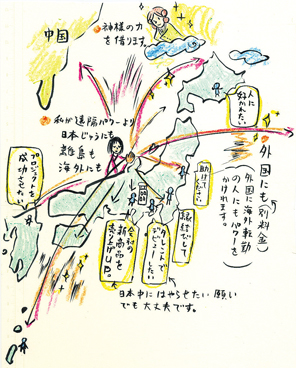 中国
神様の力
を借ります。
私が遠隔パワーより
日本じゅうにも
離島も
海外にも
人に
好かれたい
外国にも(別料金)
外国に海外転勤
の人にもパワーを
かけれます。
助けて
ください
縁結びして
タレントで
デビューしたい
会社の
新商品を
売り上げUP。
プロジェクトを
成功させたい。
日本中にはやらせたい願い
でも大丈夫です。